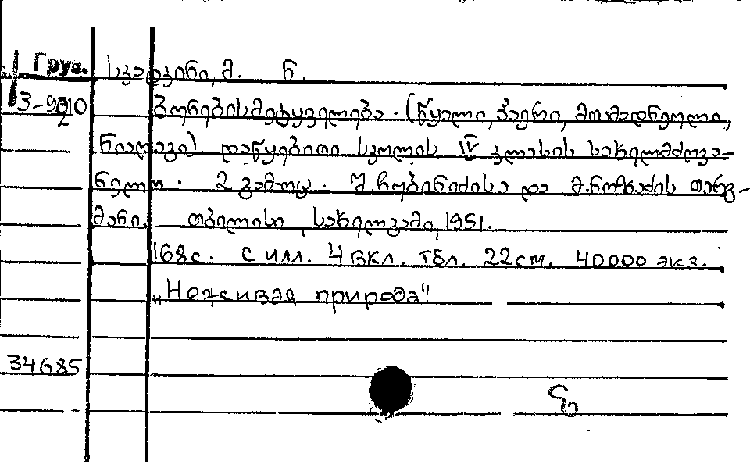 Груз. სკატკინი, მ. ნ.
3-9010
2
ბუნებისმეტყველება. (წყალი, ჰაერი, მომადნეული,
ნიადაგი) დაწყებითი სკოლის IV კლასის სახელმძღვა-
ნელო. 2 გამოც. და მ. თარგ-
მანი. თბილისი, სახელგამი, 1951.
168с. с илл. 4 вкл. тбл. 22см. 40000 экз.
„Неживая природа"
34685